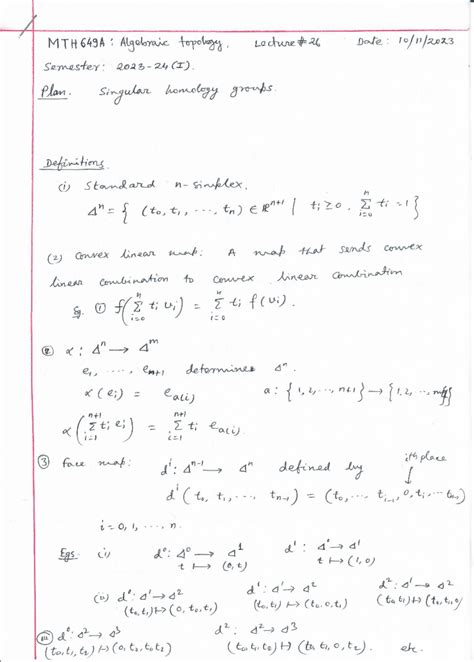 MTH649A: Algebraic topology, Lecture #26 Date: 10/11/2023
Semester: 2023-24(I).
Plan. Singular homology groups.
Definitions
(1) Standard n-simplex.
Δⁿ = { (t₀, t₁, ..., tₙ) ∈ ℝⁿ⁺¹ | tᵢ ≥ 0, Σᵢ₌₀ⁿ tᵢ = 1 }
(2) Convex linear map: A map that sends convex
linear combination to convex linear combination
Eg. ① f(Σᵢ₌₀ⁿ tᵢ vᵢ) = Σᵢ₌₀ⁿ tᵢ f(vᵢ).
② α: Δⁿ → Δᵐ
e₁, ..., eₙ₊₁ determines Δⁿ.
α(eᵢ) = e_a(i) a: {1, 2, ..., n+1} → {1, 2, ...,
α(Σᵢ₌₁ⁿ⁺¹ tᵢ eᵢ) = Σᵢ₌₁ⁿ⁺¹ tᵢ e_a(i).
ith place
③ Face map: dⁱ: Δⁿ⁻¹ → Δⁿ defined by
dⁱ(t₀, t₁, ... tₙ₋₁) = (t₀, ... tᵢ₋₁, 0, tᵢ, ... tₙ₋₁)
i = 0, 1, ..., n.
Egs. (i) d⁰: Δ⁰ → Δ¹ d¹: Δ⁰ → Δ¹
t ↦ (0, t) t ↦ (1, 0)
(ii) d⁰: Δ¹ → Δ² d¹: Δ¹ → Δ² d²: Δ¹ → Δ²
(t₀, t₁) ↦ (0, t₀, t₁) (t₀, t₁) ↦ (t₀, 0, t₁) (t₀, t₁) ↦ (t₀, t₁, 0)
(iii) d⁰: Δ² → Δ³ d²: Δ² → Δ³
(t₀, t₁, t₂) ↦ (0, t₀, t₁, t₂) (t₀, t₁, t₂) ↦ (t₀, t₁, 0, t₂). etc.